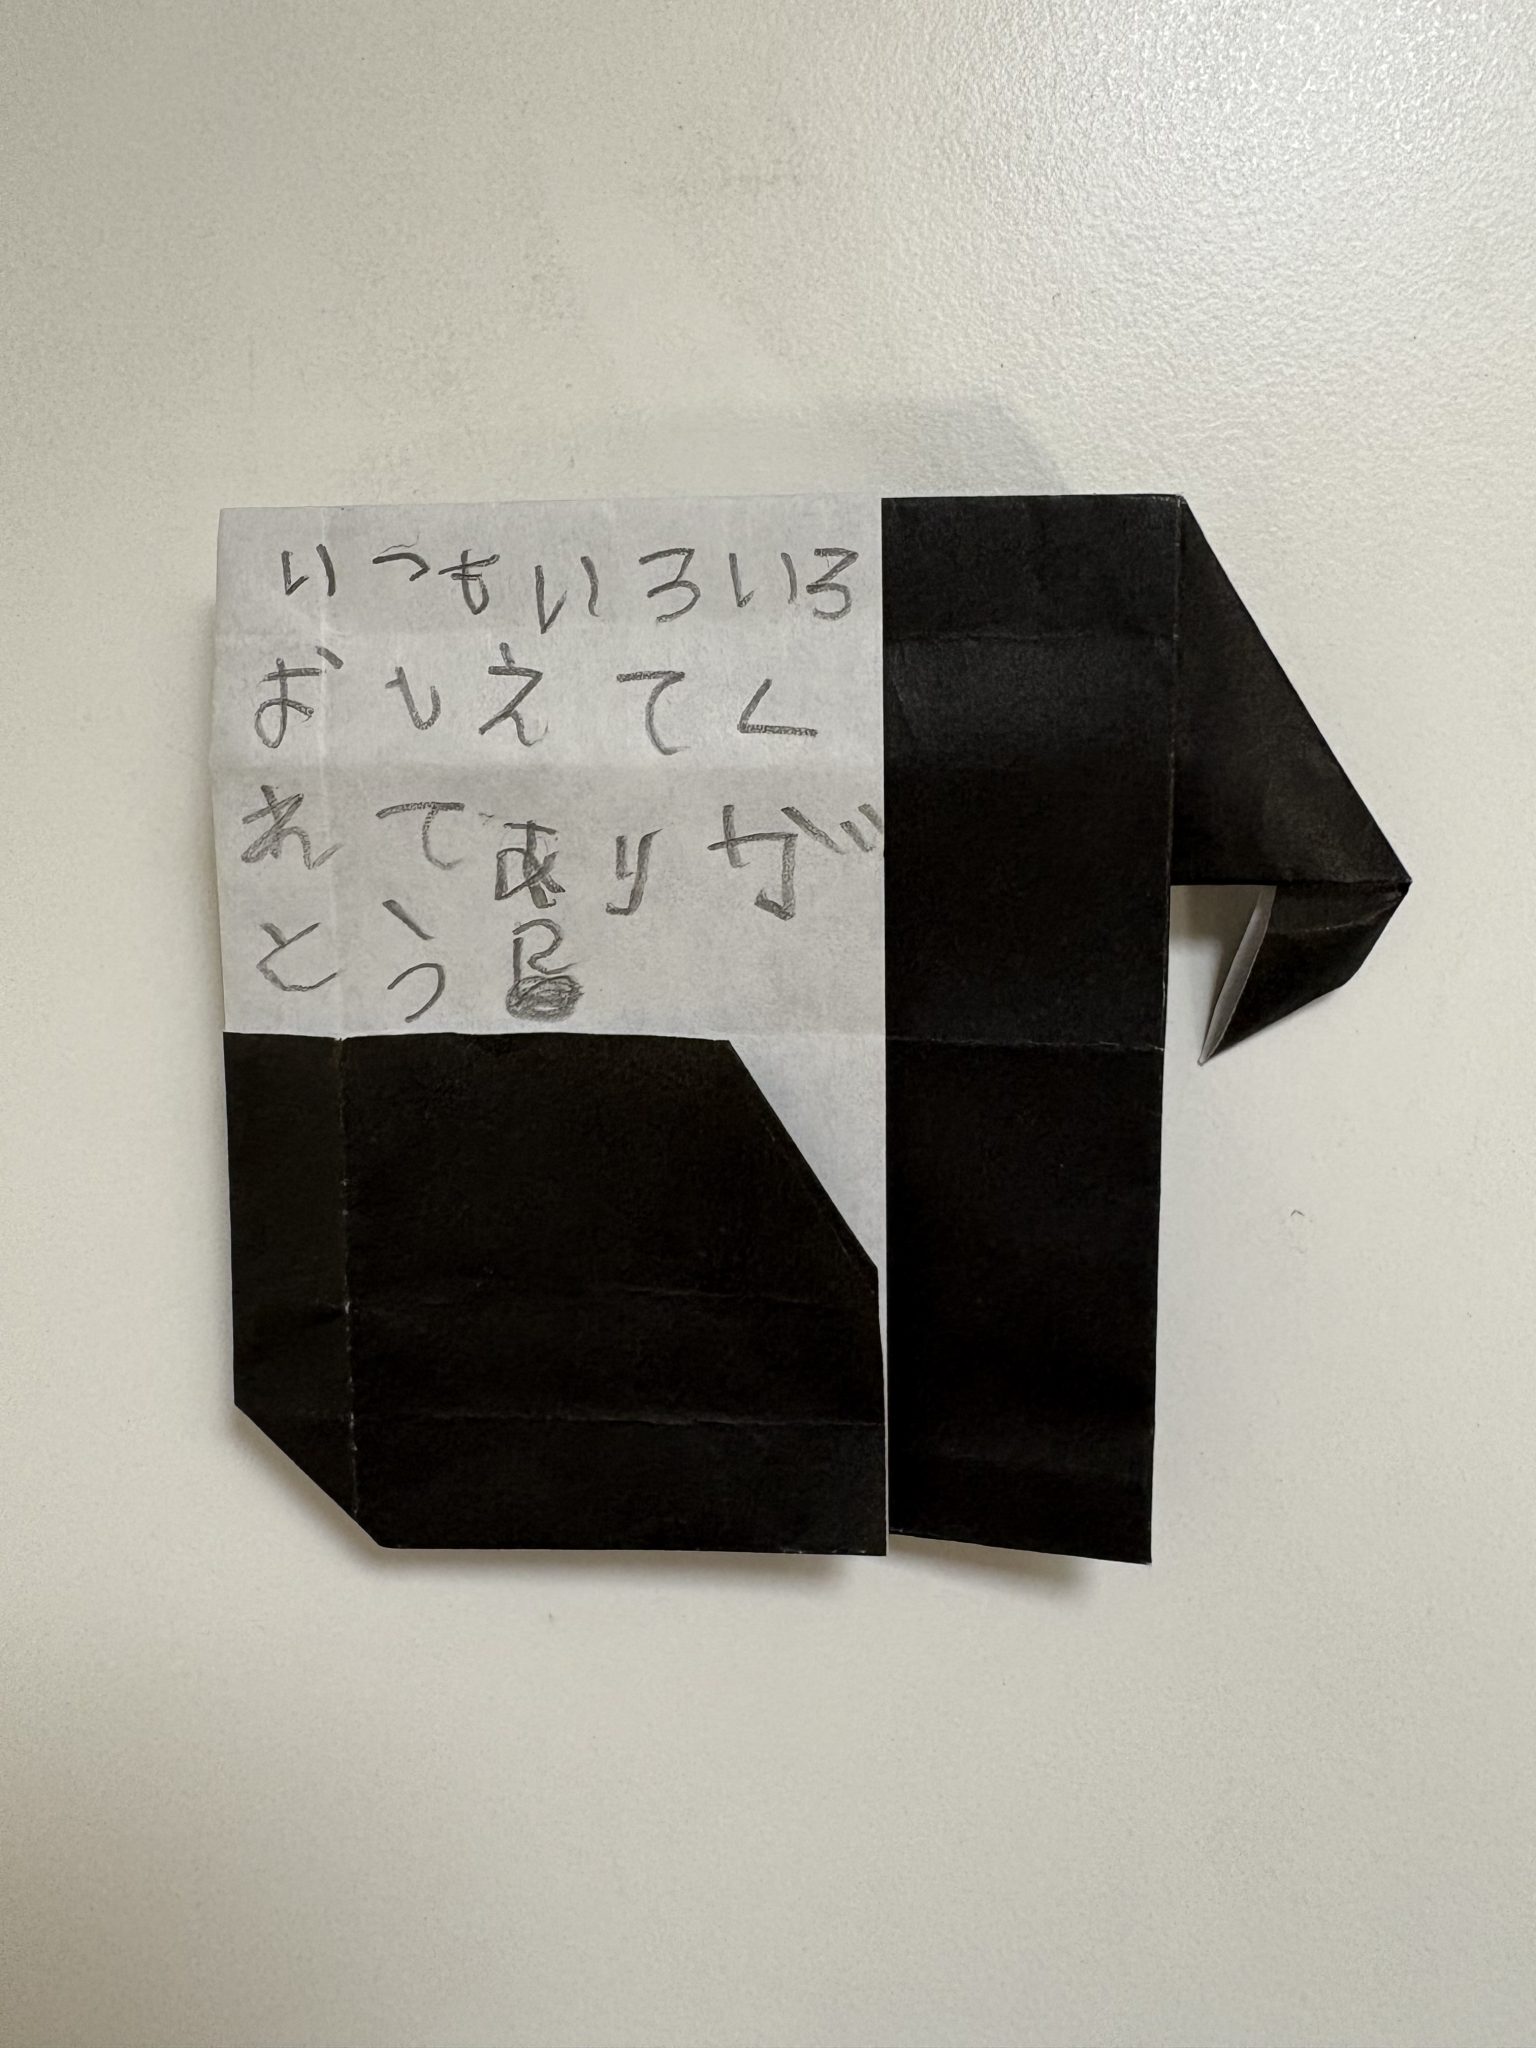 いつもいろいろ
おしえてく
れてありが
とう